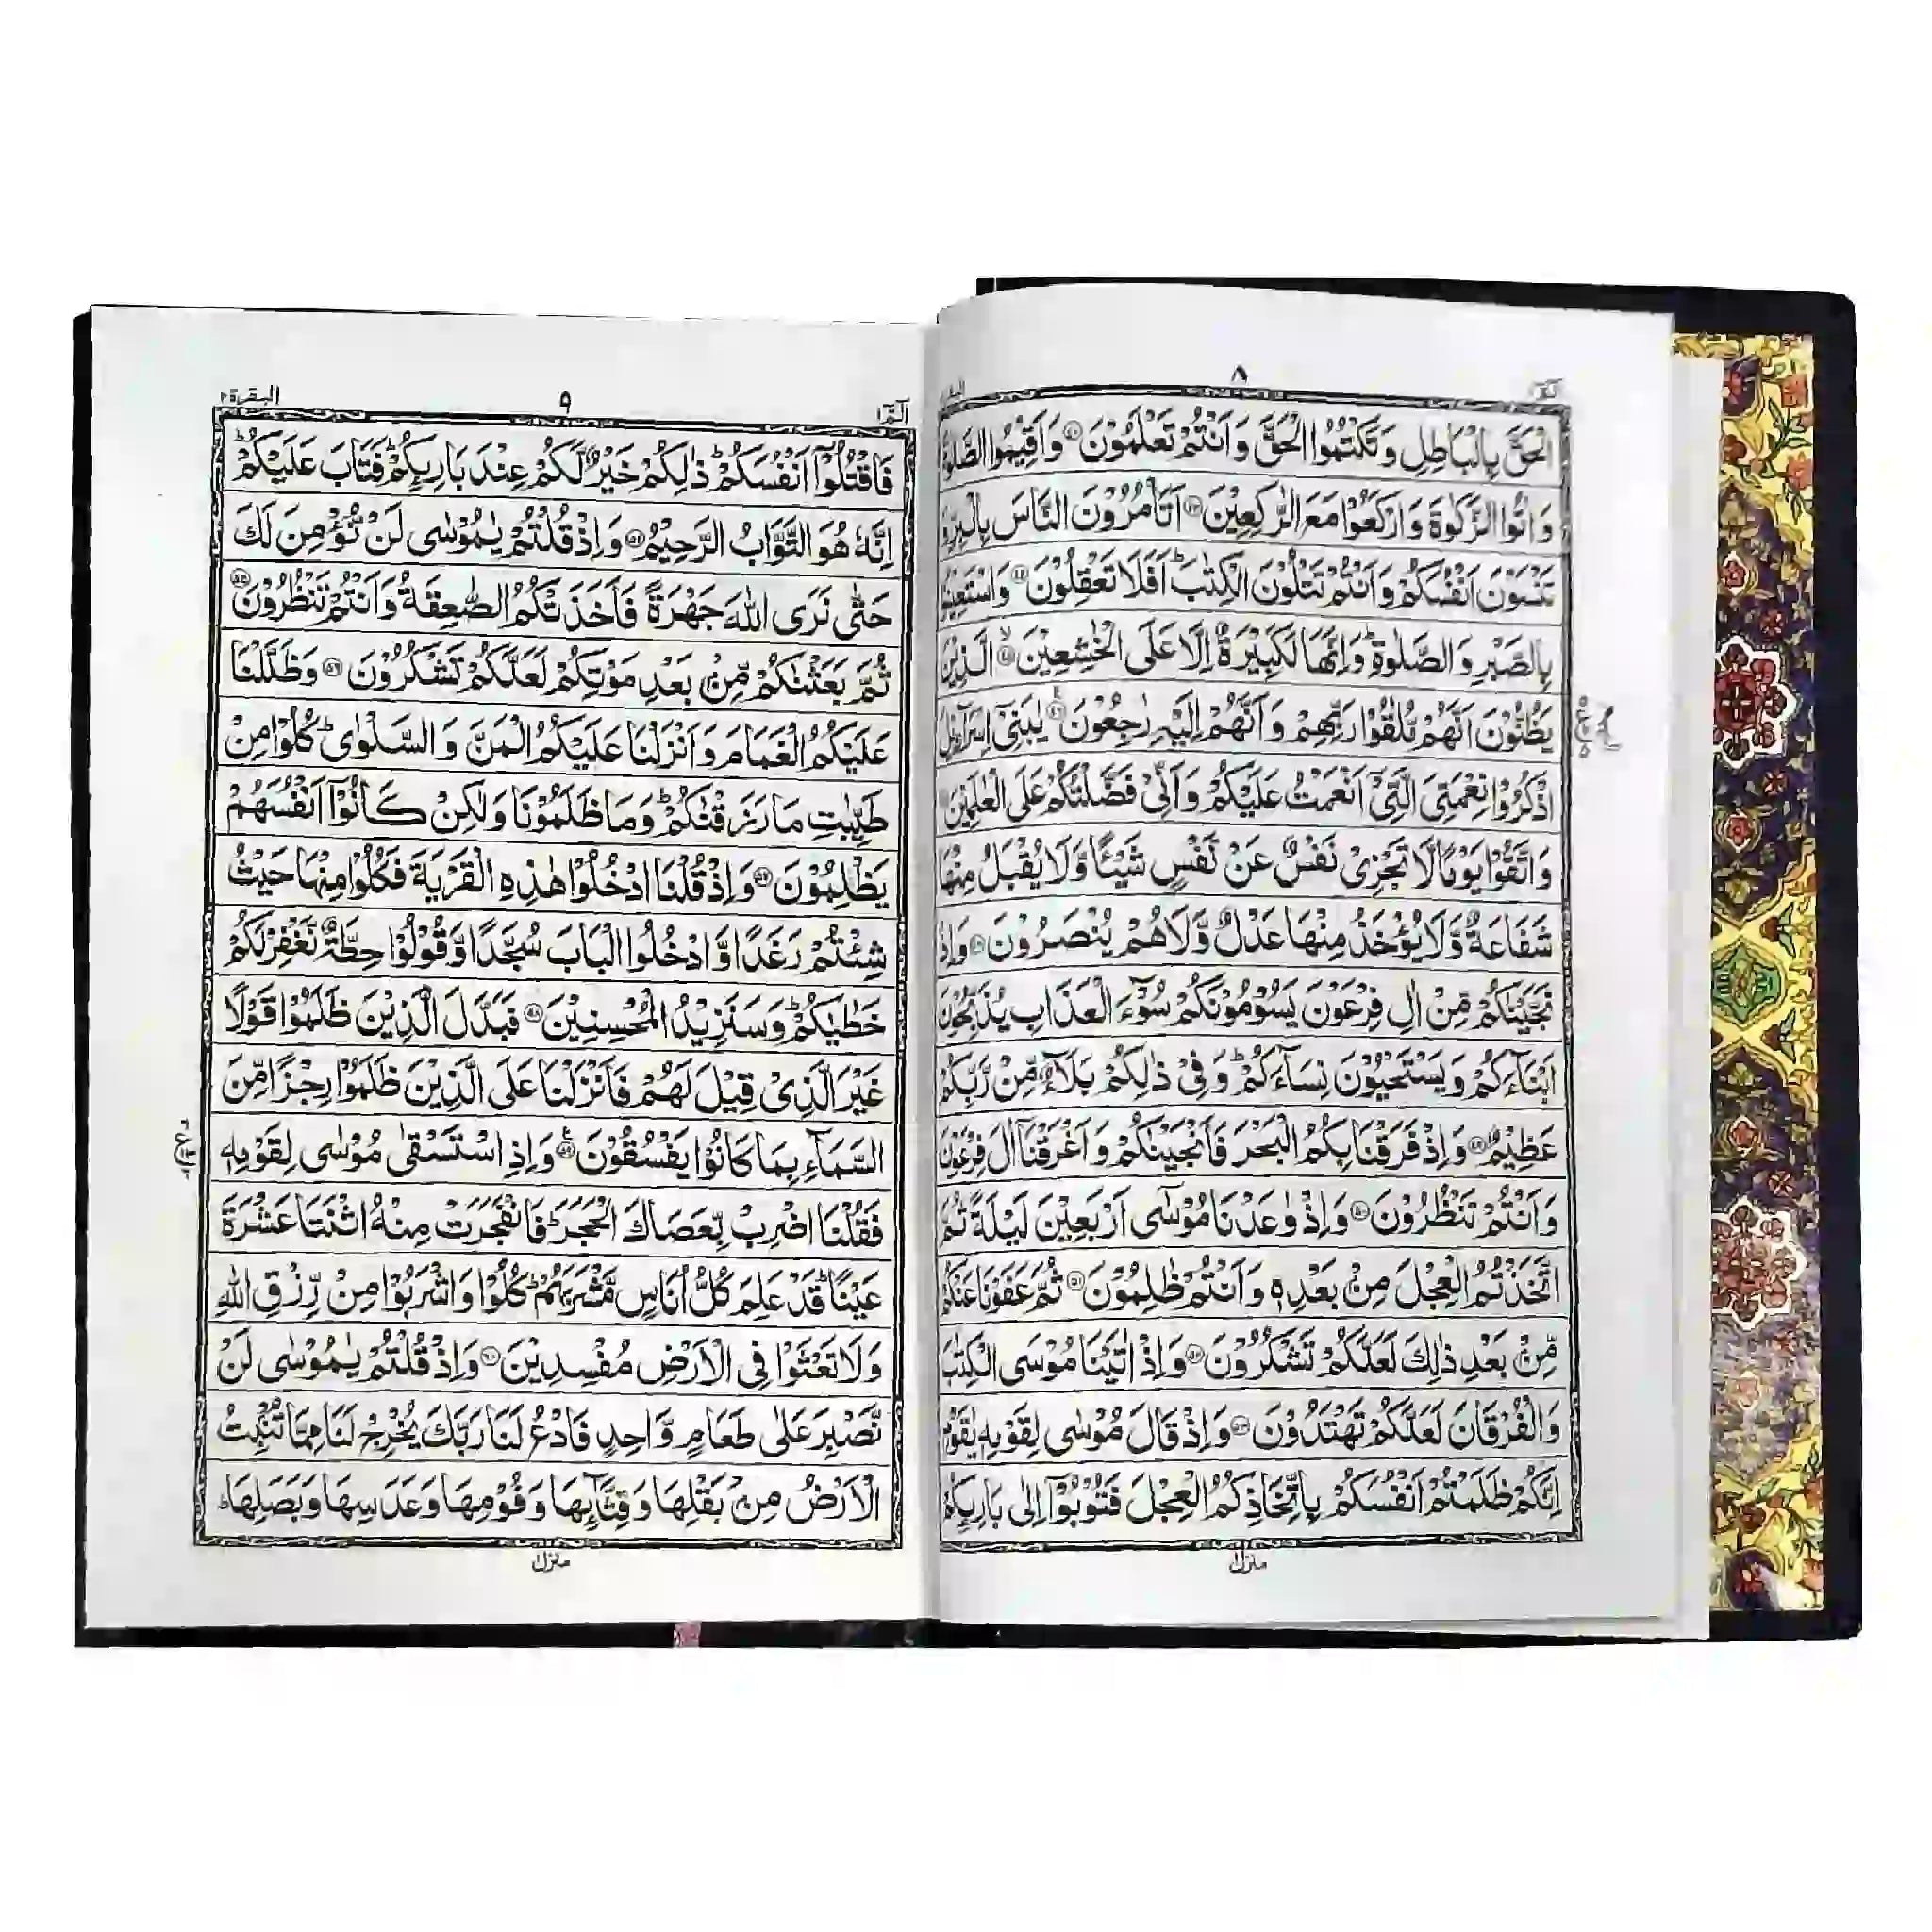 ٨
الْحَقَّ بِالْبَاطِلِ وَتَكْتُمُوا الْحَقَّ وَاَنْتُمْ تَعْلَمُوْنَ ﴿۴۲﴾ وَاَقِيْمُوا
وَاٰتُوا الزَّكٰوةَ وَارْكَعُوْا مَعَ الرّٰكِعِيْنَ ﴿۴۳﴾ اَتَاْمُرُوْنَ النَّاسَ بِالْبِرِّ
تَنْسَوْنَ اَنْفُسَكُمْ وَاَنْتُمْ تَتْلُوْنَ الْكِتٰبَ ؕ اَفَلَا تَعْقِلُوْنَ ﴿۴۴﴾
بِالصَّبْرِ وَالصَّلٰوةِ ؕ وَاِنَّهَا لَكَبِيْرَةٌ اِلَّا عَلَى الْخٰشِعِيْنَ ﴿۴۵﴾ الَّذِيْنَ
يَظُنُّوْنَ اَنَّهُمْ مُّلٰقُوْا رَبِّهِمْ وَاَنَّهُمْ اِلَيْهِ رٰجِعُوْنَ ﴿۴۶﴾ يٰبَنِيْۤ اِسْرَآءِيْلَ
اذْكُرُوْا نِعْمَتِيَ الَّتِيْۤ اَنْعَمْتُ عَلَيْكُمْ وَاَنِّيْ فَضَّلْتُكُمْ عَلَى الْعٰلَمِيْنَ
وَاتَّقُوْا يَوْمًا لَّا تَجْزِيْ نَفْسٌ عَنْ نَّفْسٍ شَيْئًا وَّلَا يُقْبَلُ مِنْهَا
شَفَاعَةٌ وَّلَا يُؤْخَذُ مِنْهَا عَدْلٌ وَّلَا هُمْ يُنْصَرُوْنَ ﴿۴۸﴾ وَاِذْ
نَجَّيْنٰكُمْ مِّنْ اٰلِ فِرْعَوْنَ يَسُوْمُوْنَكُمْ سُوْٓءَ الْعَذَابِ يُذَبِّحُوْنَ
اَبْنَآءَكُمْ وَيَسْتَحْيُوْنَ نِسَآءَكُمْ ؕ وَفِيْ ذٰلِكُمْ بَلَآءٌ مِّنْ رَّبِّكُمْ
عَظِيْمٌ ﴿۴۹﴾ وَاِذْ فَرَقْنَا بِكُمُ الْبَحْرَ فَاَنْجَيْنٰكُمْ وَاَغْرَقْنَاۤ اٰلَ فِرْعَوْنَ
وَاَنْتُمْ تَنْظُرُوْنَ ﴿۵۰﴾ وَاِذْ وٰعَدْنَا مُوْسٰۤى اَرْبَعِيْنَ لَيْلَةً ثُمَّ
اتَّخَذْتُمُ الْعِجْلَ مِنْۢ بَعْدِهٖ وَاَنْتُمْ ظٰلِمُوْنَ ﴿۵۱﴾ ثُمَّ عَفَوْنَا عَنْكُمْ
مِّنْۢ بَعْدِ ذٰلِكَ لَعَلَّكُمْ تَشْكُرُوْنَ ﴿۵۲﴾ وَاِذْ اٰتَيْنَا مُوْسَى الْكِتٰبَ
وَالْفُرْقَانَ لَعَلَّكُمْ تَهْتَدُوْنَ ﴿۵۳﴾ وَاِذْ قَالَ مُوْسٰى لِقَوْمِهٖ يٰقَوْمِ
اِنَّكُمْ ظَلَمْتُمْ اَنْفُسَكُمْ بِاتِّخَاذِكُمُ الْعِجْلَ فَتُوْبُوْۤا اِلٰى بَارِئِكُمْ
منزل
الٓمّٓ ٩ البقرة ٢
فَاقْتُلُوْۤا اَنْفُسَكُمْ ؕ ذٰلِكُمْ خَيْرٌ لَّكُمْ عِنْدَ بَارِئِكُمْ ؕ فَتَابَ عَلَيْكُمْ ؕ
اِنَّهٗ هُوَ التَّوَّابُ الرَّحِيْمُ ﴿۵۴﴾ وَاِذْ قُلْتُمْ يٰمُوْسٰى لَنْ نُّؤْمِنَ لَكَ
حَتّٰى نَرَى اللّٰهَ جَهْرَةً فَاَخَذَتْكُمُ الصّٰعِقَةُ وَاَنْتُمْ تَنْظُرُوْنَ ﴿۵۵﴾
ثُمَّ بَعَثْنٰكُمْ مِّنْۢ بَعْدِ مَوْتِكُمْ لَعَلَّكُمْ تَشْكُرُوْنَ ﴿۵۶﴾ وَظَلَّلْنَا
عَلَيْكُمُ الْغَمَامَ وَاَنْزَلْنَا عَلَيْكُمُ الْمَنَّ وَالسَّلْوٰى ؕ كُلُوْا مِنْ
طَيِّبٰتِ مَا رَزَقْنٰكُمْ ؕ وَمَا ظَلَمُوْنَا وَلٰكِنْ كَانُوْۤا اَنْفُسَهُمْ
يَظْلِمُوْنَ ﴿۵۷﴾ وَاِذْ قُلْنَا ادْخُلُوْا هٰذِهِ الْقَرْيَةَ فَكُلُوْا مِنْهَا حَيْثُ
شِئْتُمْ رَغَدًا وَّادْخُلُوا الْبَابَ سُجَّدًا وَّقُوْلُوْا حِطَّةٌ نَّغْفِرْ لَكُمْ
خَطٰيٰكُمْ ؕ وَسَنَزِيْدُ الْمُحْسِنِيْنَ ﴿۵۸﴾ فَبَدَّلَ الَّذِيْنَ ظَلَمُوْا قَوْلًا
غَيْرَ الَّذِيْ قِيْلَ لَهُمْ فَاَنْزَلْنَا عَلَى الَّذِيْنَ ظَلَمُوْا رِجْزًا مِّنَ
السَّمَآءِ بِمَا كَانُوْا يَفْسُقُوْنَ ﴿۵۹﴾ وَاِذِ اسْتَسْقٰى مُوْسٰى لِقَوْمِهٖ
فَقُلْنَا اضْرِبْ بِّعَصَاكَ الْحَجَرَ ؕ فَانْفَجَرَتْ مِنْهُ اثْنَتَا عَشْرَةَ
عَيْنًا ؕ قَدْ عَلِمَ كُلُّ اُنَاسٍ مَّشْرَبَهُمْ ؕ كُلُوْا وَاشْرَبُوْا مِنْ رِّزْقِ اللّٰهِ
وَلَا تَعْثَوْا فِي الْاَرْضِ مُفْسِدِيْنَ ﴿۶۰﴾ وَاِذْ قُلْتُمْ يٰمُوْسٰى لَنْ
نَّصْبِرَ عَلٰى طَعَامٍ وَّاحِدٍ فَادْعُ لَنَا رَبَّكَ يُخْرِجْ لَنَا مِمَّا تُنْۢبِتُ
الْاَرْضُ مِنْۢ بَقْلِهَا وَقِثَّآئِهَا وَفُوْمِهَا وَعَدَسِهَا وَبَصَلِهَا ؕ
منزل